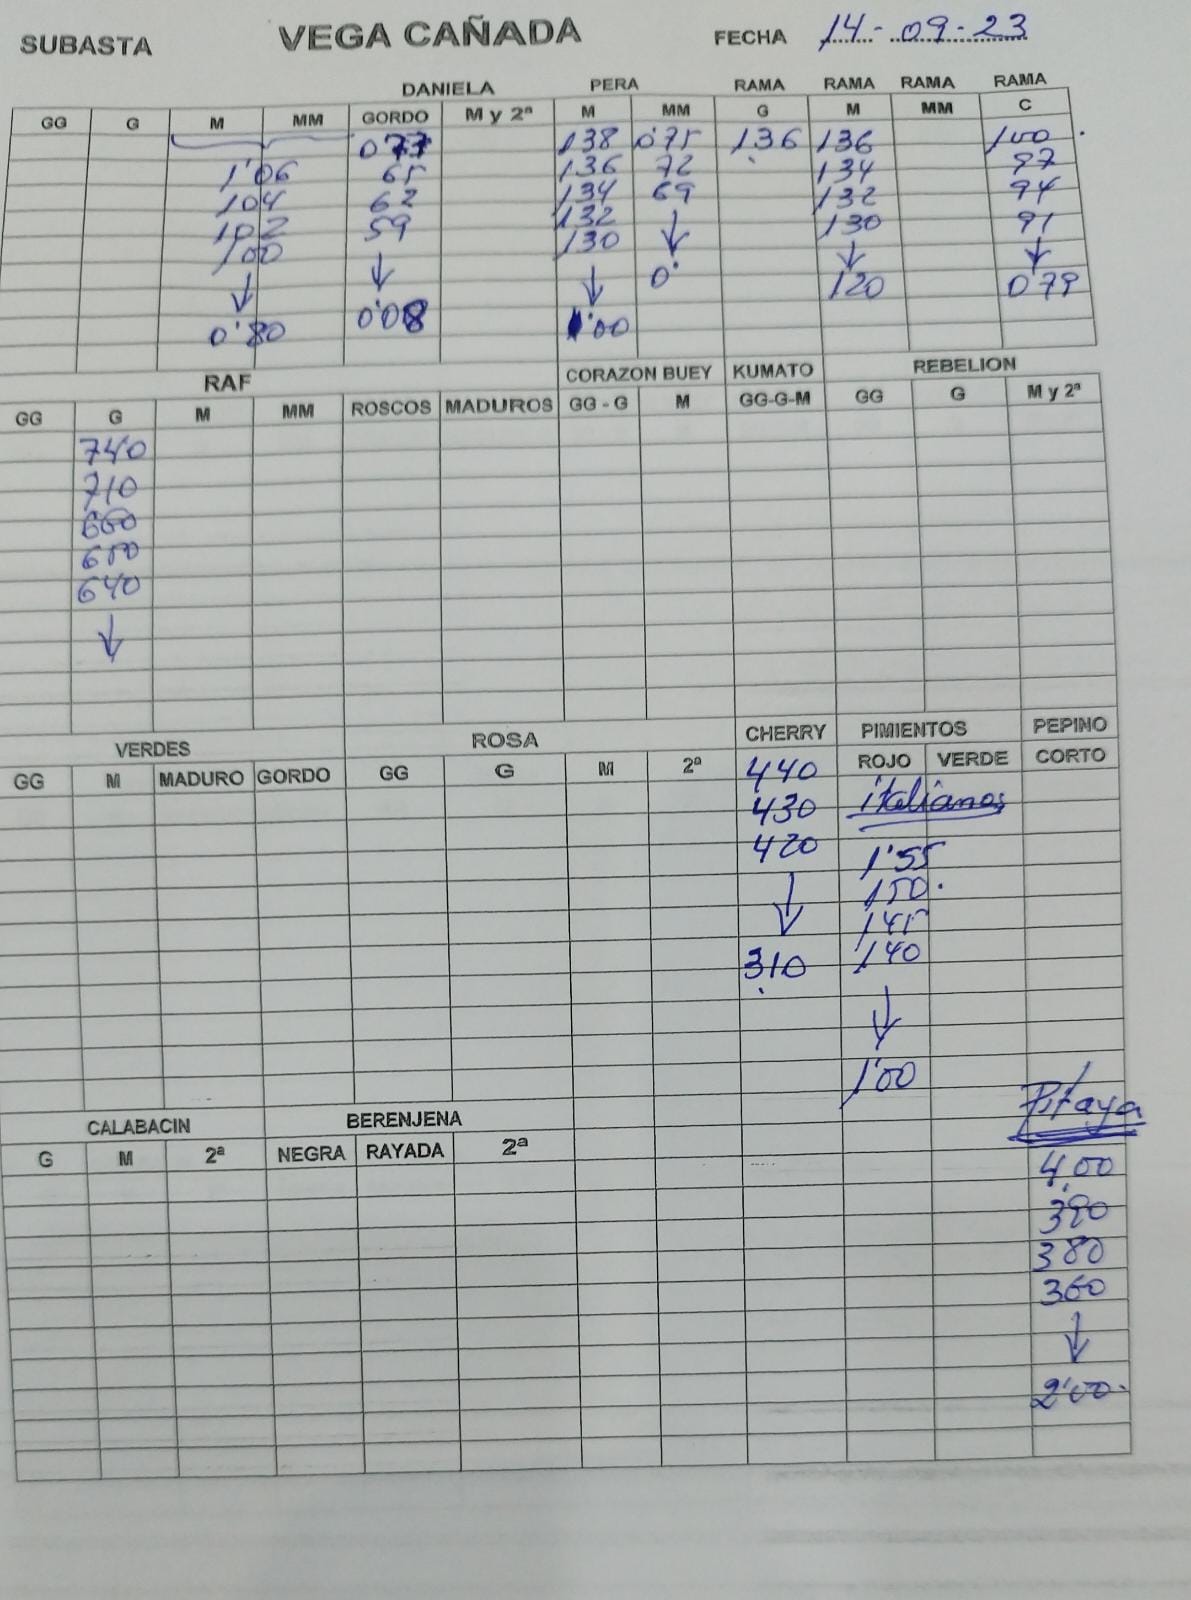 SUBASTA VEGA CAÑADA FECHA 14-09-23
DANIELA PERA RAMA RAMA RAMA RAMA
GG G M MM GORDO M y 2ª M MM G M MM C
138 0'75 136 136 100
1'06 65 136 72 134 97
104 62 134 69 132 94
102 59 132 ↓ 130 91
100 ↓ 130 0' ↓ ↓
↓ 0'08 ↓ 120 0'79
0'80 1'00
RAF CORAZON BUEY KUMATO REBELION
GG G M MM ROSCOS MADUROS GG - G M GG-G-M GG G M y 2ª
740
710
660
650
640
↓
VERDES ROSA CHERRY PIMIENTOS PEPINO
GG M MADURO GORDO GG G M 2ª 440 ROJO VERDE CORTO
430 italianos
420 1'55
↓ 150
145
310 140
↓
1'00
Pitaya
CALABACIN BERENJENA
G M 2ª NEGRA RAYADA 2ª 4,00
390
380
360
↓
2'00